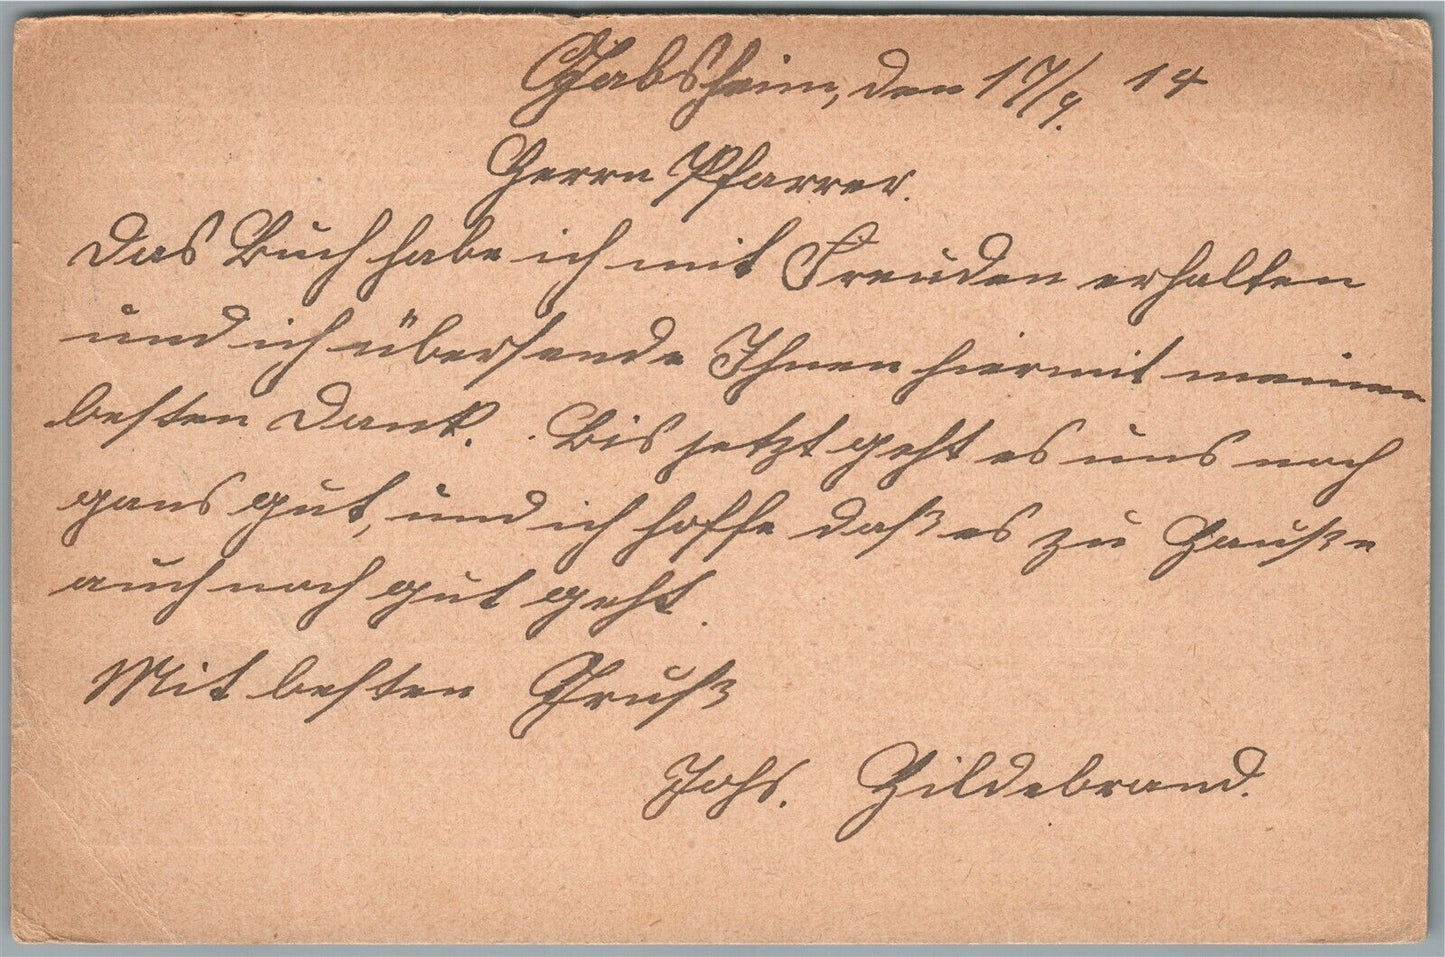 Gabsheim, den 17/9. 14
Herrn Pfarrer.
Das Buch habe ich mit Freuden erhalten
und ich übersende Ihnen hiermit meinen
besten Dank. Bis jetzt geht es uns noch
gans gut, und ich hoffe daß es zu Hauße
auch noch gut geht.
Mit besten Gruß
Johs. Hildebrand.